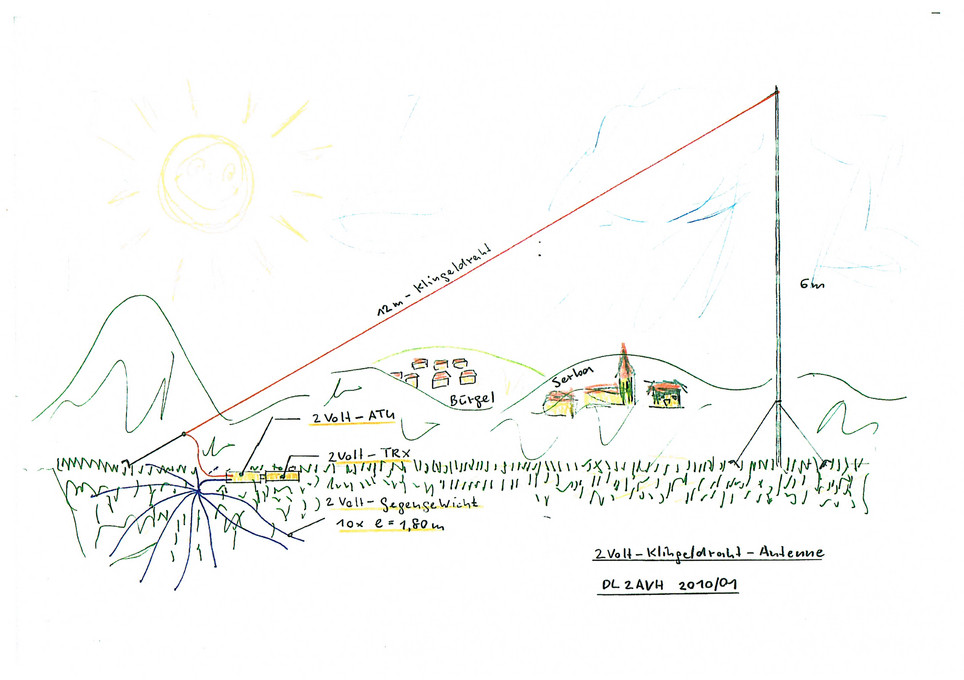 12m - Klingeldraht
6m
Serba
Bürgel
2Volt-ATU
2Volt-TRX
2Volt-Gegengewicht
10x l=1,80m
2Volt-Klingeldraht-Antenne
DL2AVH 2010/01